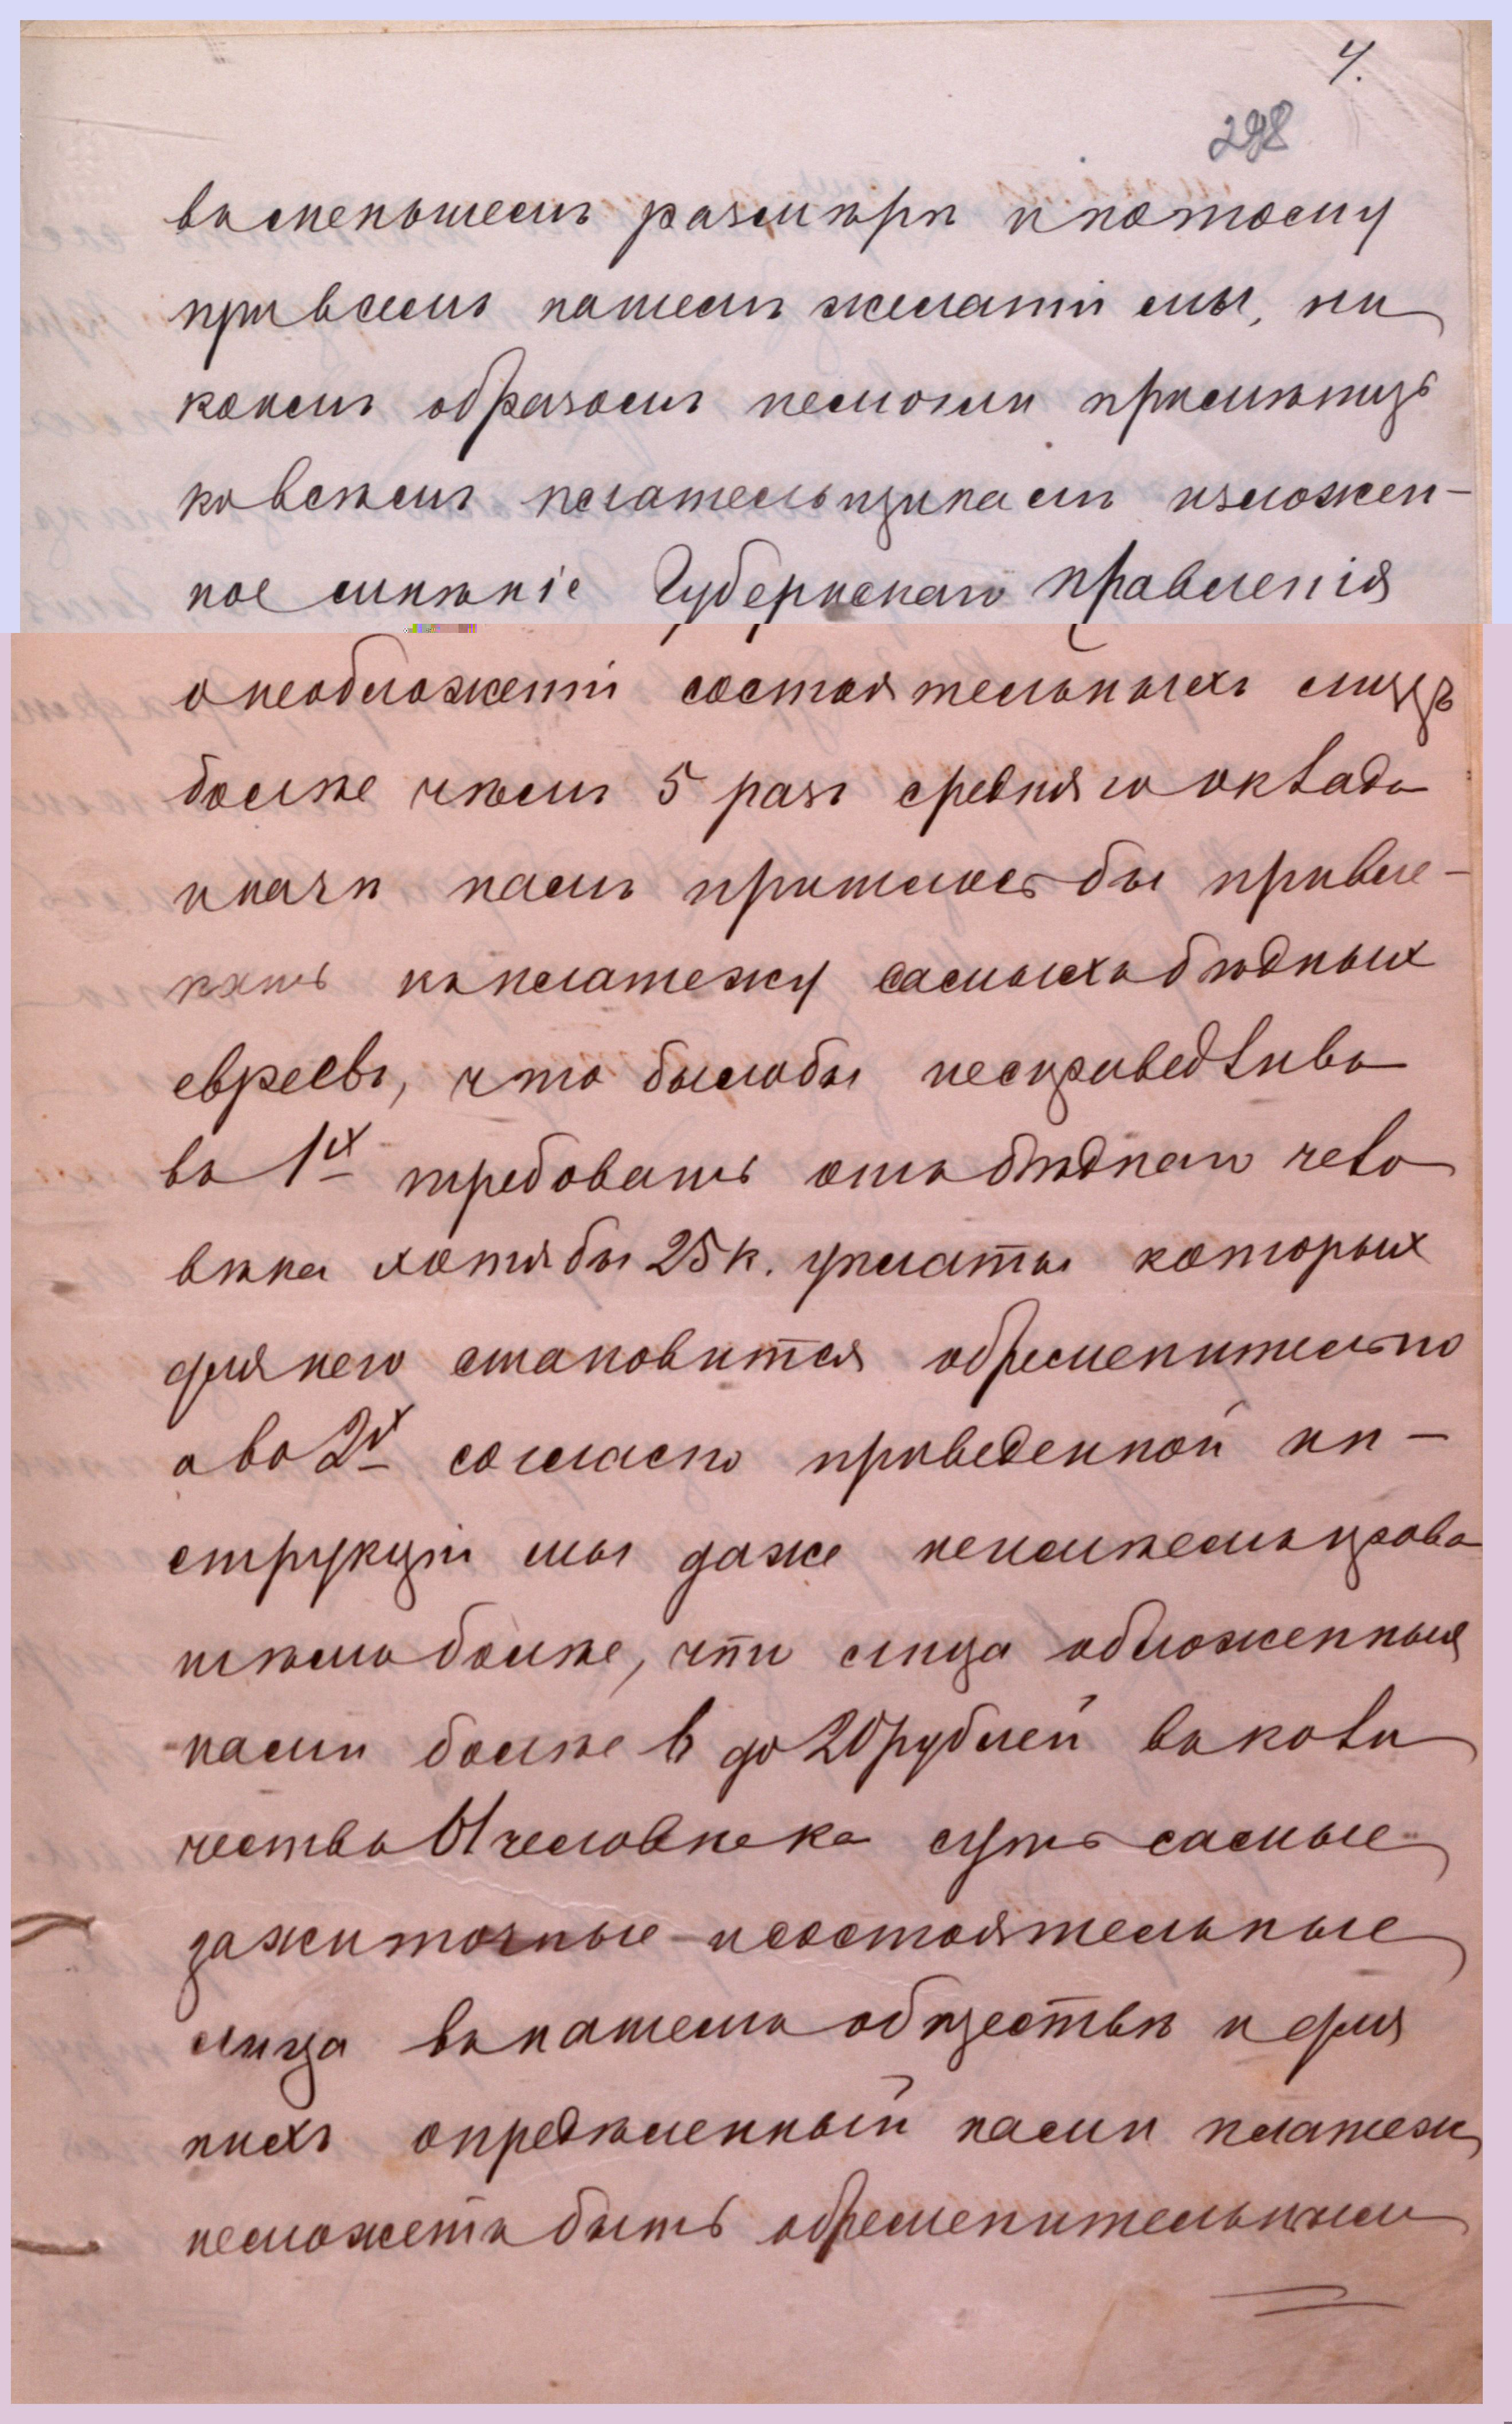 4.
298
въ меньшемъ размѣрѣ и потому
при всемъ нашемъ желаніи мы, ни
коимъ образомъ немогли примѣнить
ко всѣмъ плательщикамъ изложен-
ное мнѣніе Губернскаго Правленія
о необложеніи состоятельныхъ лицъ
болѣе чѣмъ 5 разъ средняго оклада
иначе намъ пришлось бы привле-
кать къ платежу самыхъ бѣдных
евреевъ, что былобы несправедливо
во 1х требовать отъ бѣднаго чело
вѣка хотябы 25 к. уплаты которых
для него становится обременительно
а во 2х согласно приведенной ин-
струкціи мы даже неимѣемъ права
тѣмъ болѣе, что лица обложенныя
нами болѣе 6 до 20 рублей въ коли
чество 61 человѣка суть самые
зажиточные и состоятельные
лица въ нашемъ обществѣ и для
нихъ опредѣленный нами платеж
неможетъ быть обременительным